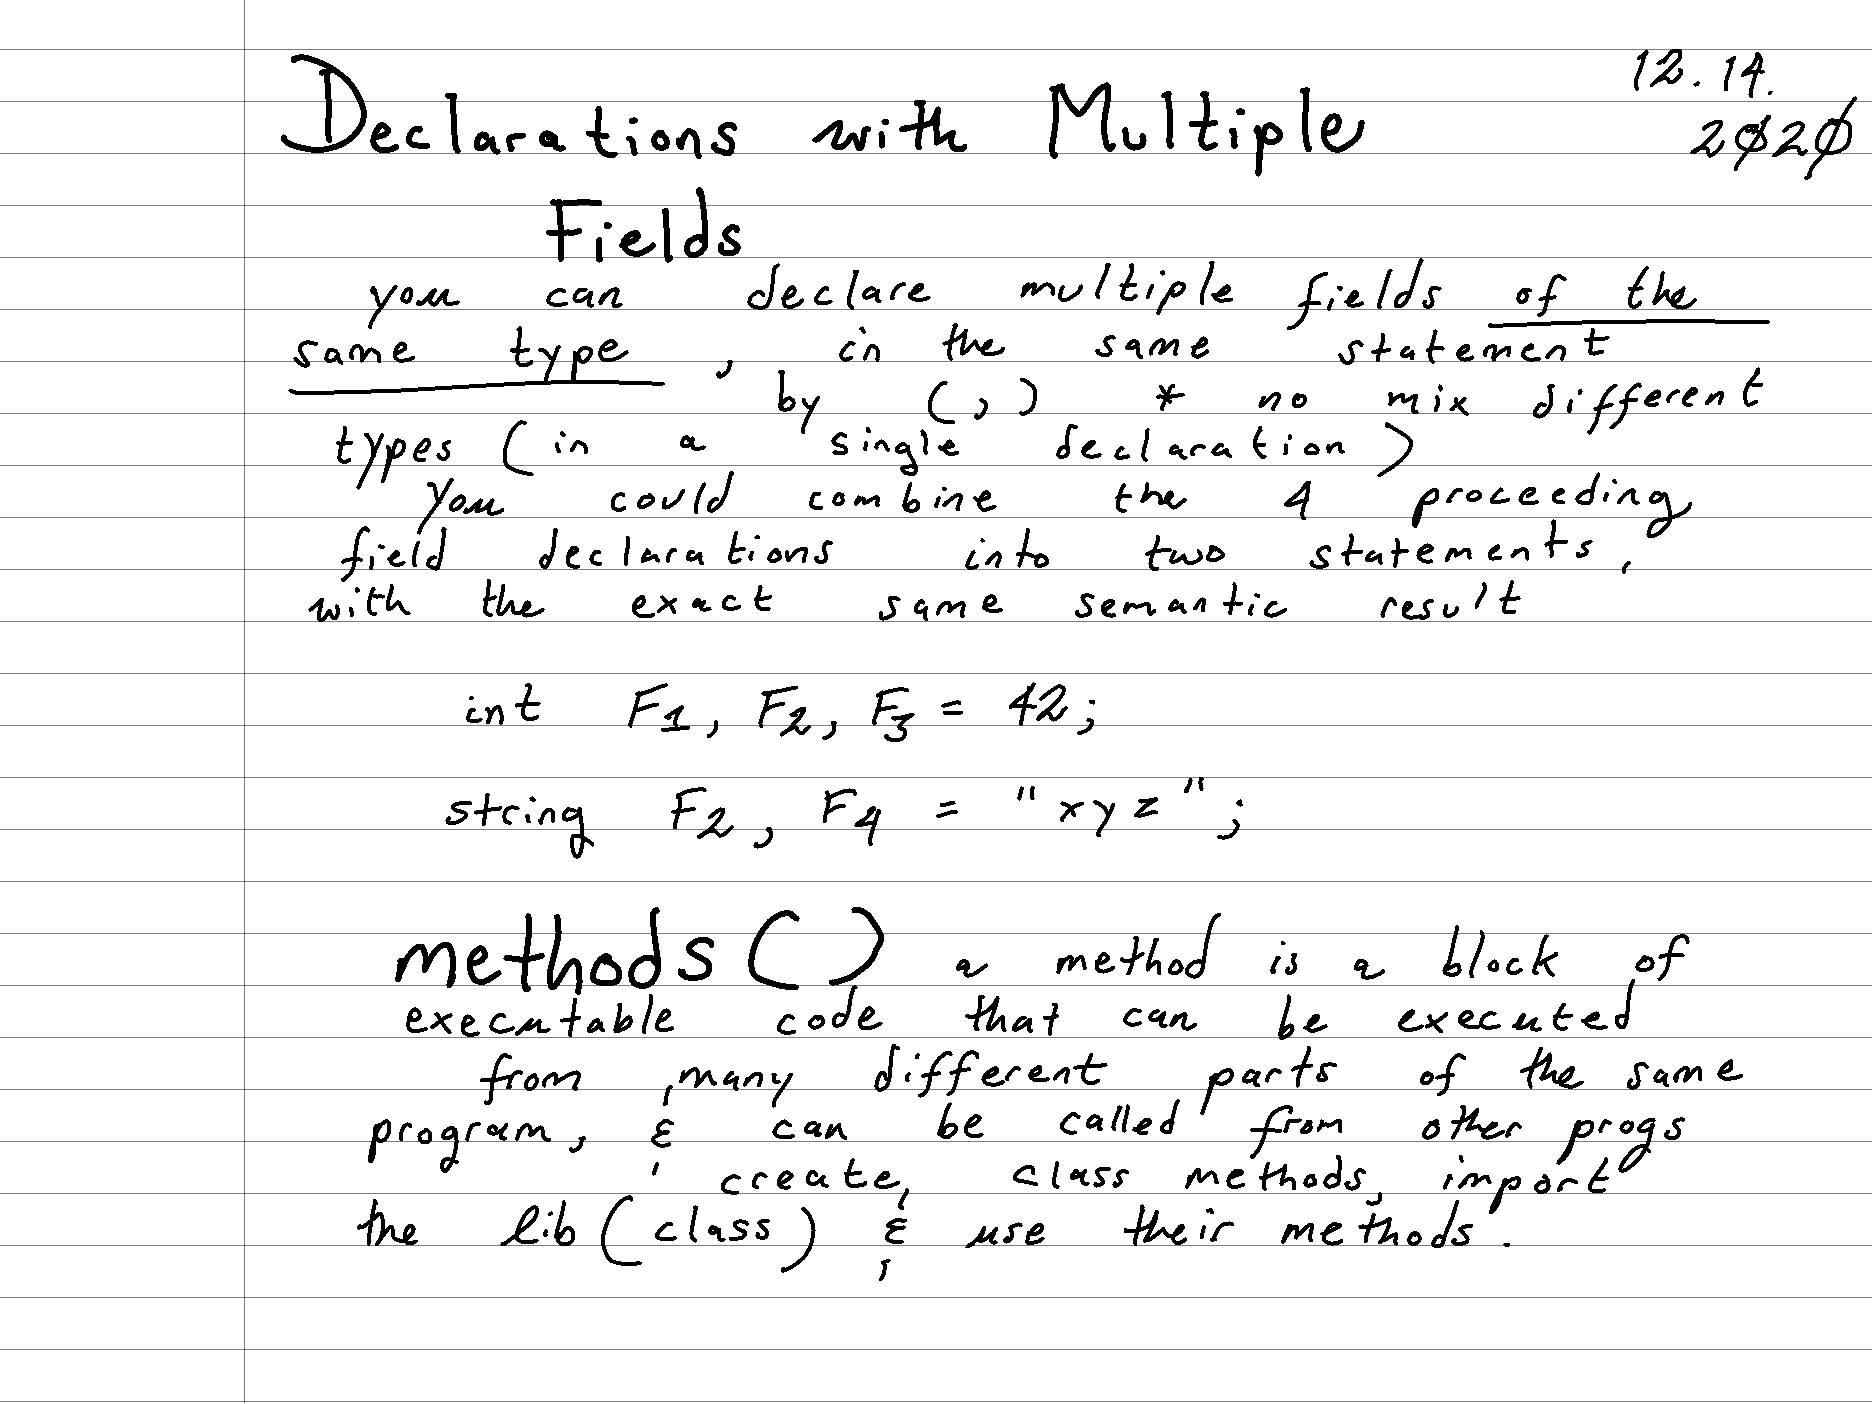 12.14.
2020
Declarations with Multiple
Fields
you can declare multiple fields of the
same type, in the same statement
by (,) * no mix different
types (in a single declaration)
You could combine the 4 proceeding
field declarations into two statements,
with the exact same semantic result
int F1, F2, F3 = 42;
string F2, F4 = "xyz";
methods() a method is a block of
executable code that can be executed
from many different parts of the same
program, & can be called from other progs
create, class methods, import
the lib (class) & use their methods.